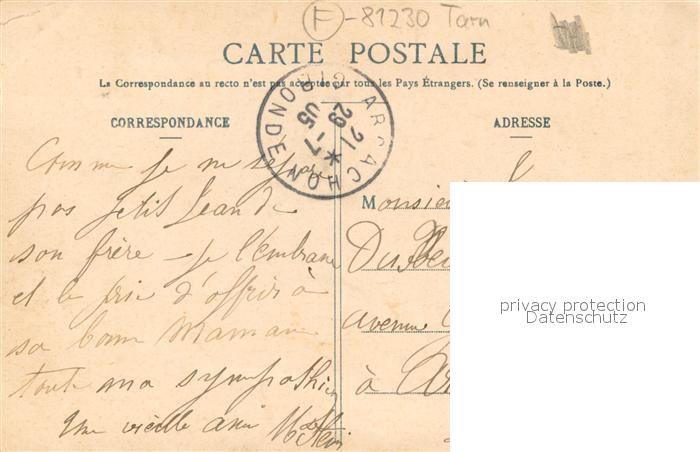 F - 81230 Tarn
CARTE POSTALE
La Correspondance au recto n'est pas acceptée par tous les Pays Étrangers. (Se renseigner à la Poste.)
CORRESPONDANCE
ADRESSE
ARCACHON
21
29 - 7
05
GIRONDE
Comme je ne sépare
pas petit Jean de
son frère - je l'embrasse
et le prie d'offrir à
sa bonne Maman
toute ma sympathie
Une vieille amie
Monsieur
avenue
à
privacy protection
Datenschutz